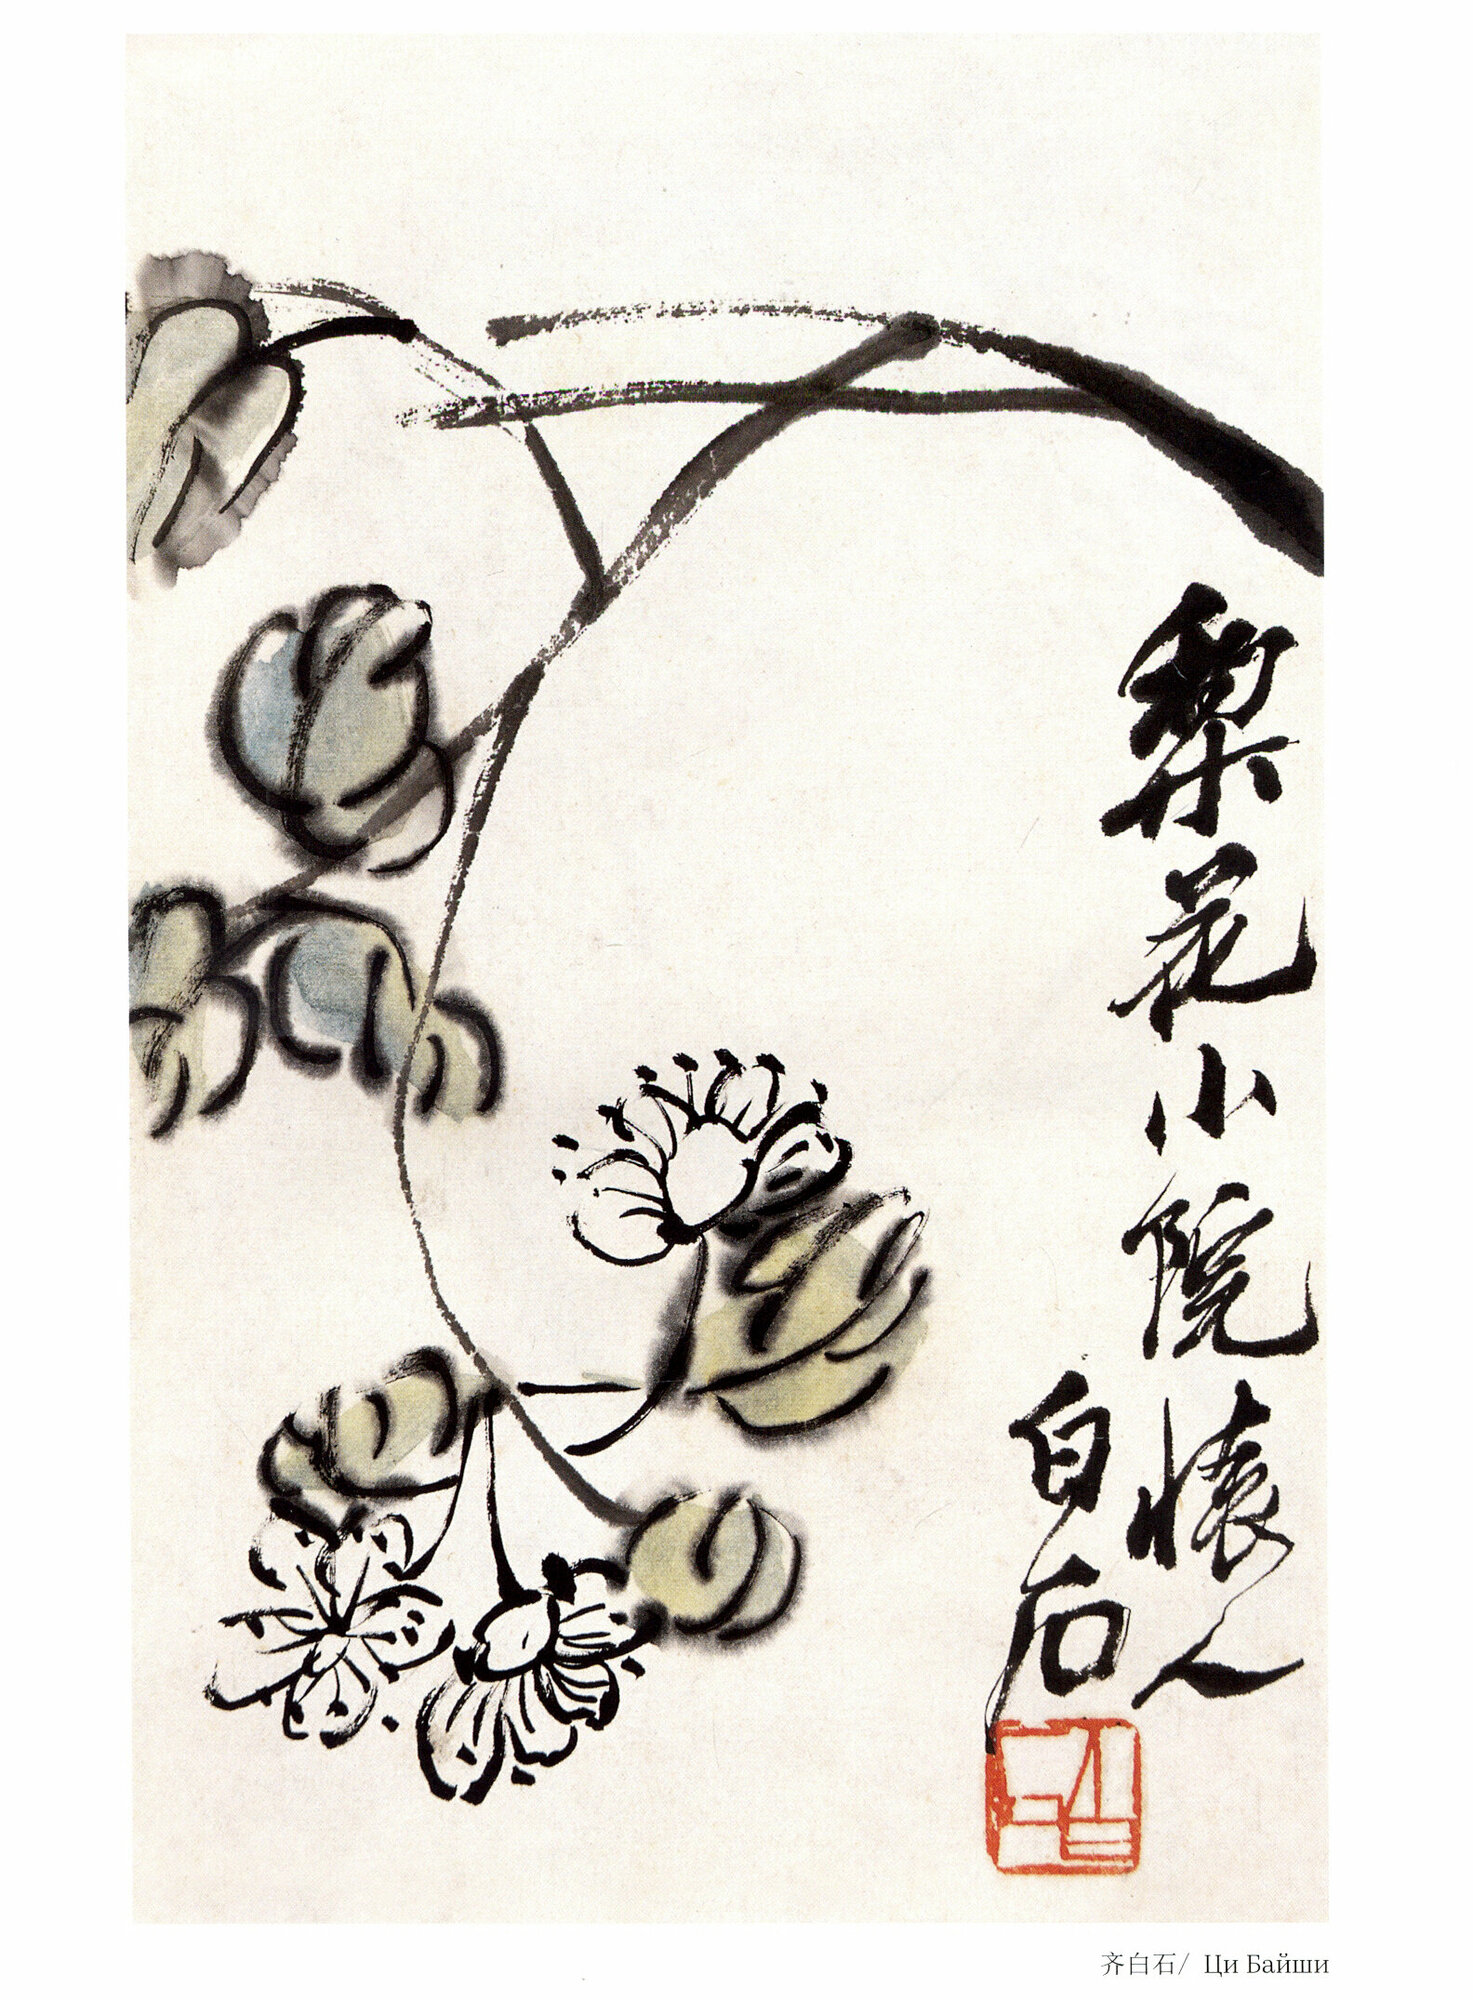 梨花小院懷人
白石
齐白石/ Ци Байши